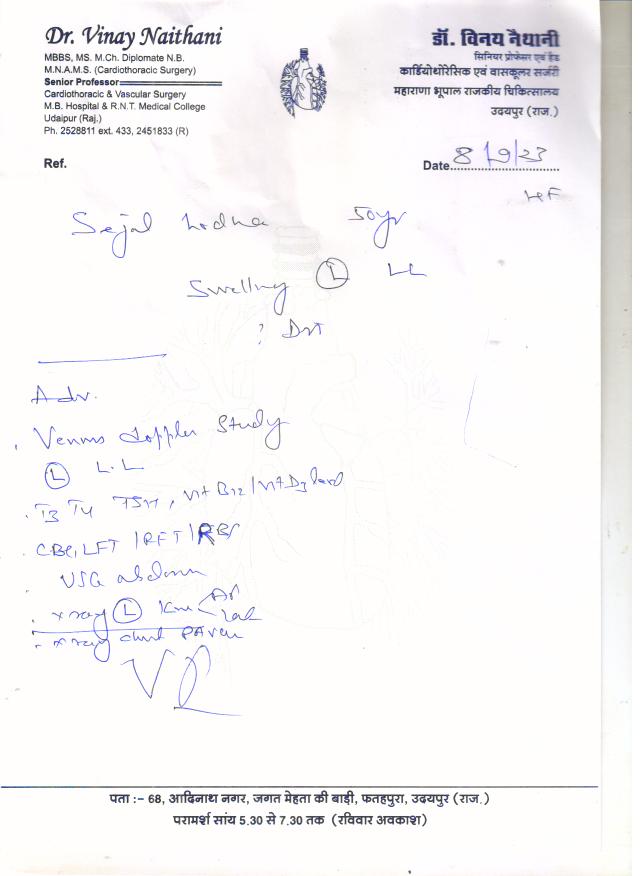 Dr. Vinay Naithani
MBBS, MS. M.Ch. Diplomate N.B.
M.N.A.M.S. (Cardiothoracic Surgery)
Senior Professor
Cardiothoracic & Vascular Surgery
M.B. Hospital & R.N.T. Medical College
Udaipur (Raj.)
Ph. 2528811 ext. 433, 2451833 (R)
डॉ. विनय नैथानी
सिनियर प्रोफेसर एवं हैड
कार्डियोथोरेसिक एवं वासकूलर सर्जरी
महाराणा भूपाल राजकीय चिकित्सालय
उदयपुर (राज.)
Ref.
Date 8/9/23
Sejal 50yr
Swelling (L) LL
? DVT
Adv.
Venous Doppler Study
(L) L.L
T3 T4 TSH, Vit B12/Vit D3 level
CBC, LFT / RFT / RBS
USG abdomen
x ray (L) Knee AP Lat
x ray chest PA view
पता :– 68, आदिनाथ नगर, जगत मेहता की बाड़ी, फतहपुरा, उदयपुर (राज.)
परामर्श सांय 5.30 से 7.30 तक (रविवार अवकाश)